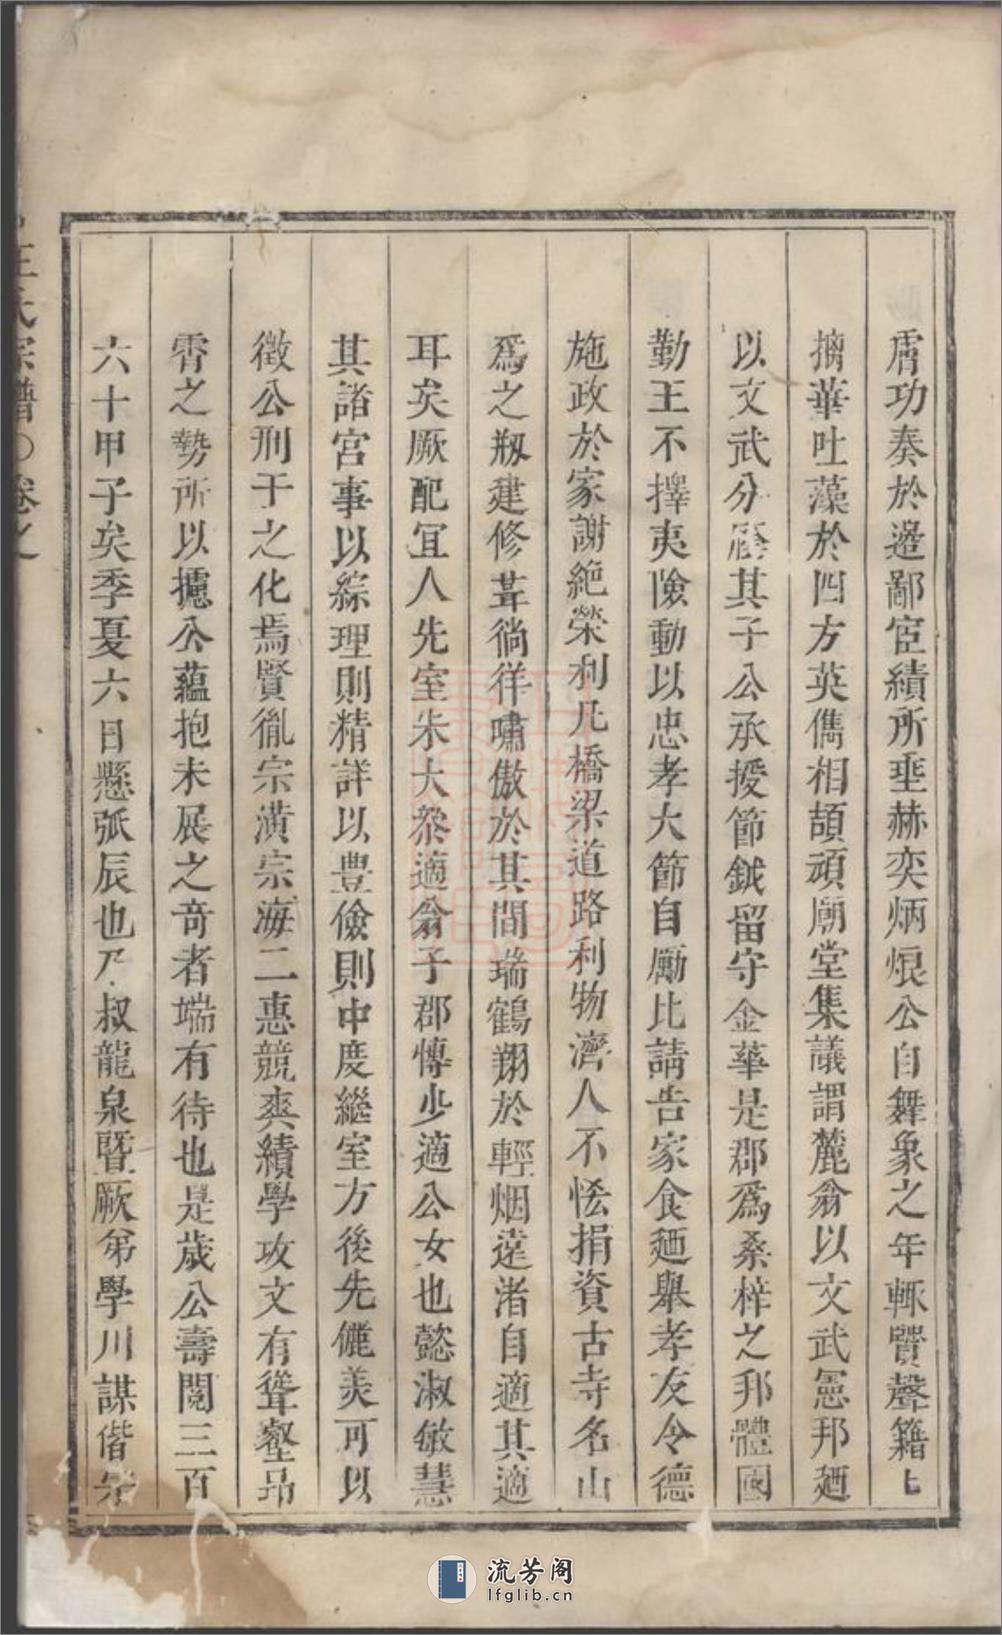 膚功奏於邊鄙宦績所埀赫奕炳烺公自舞象之年輙賢聲籍
摛華吐藻於四方英儁相頡頏廟堂集議謂麓翁以文武憲邦廼
以文武分廕其子公承授節鉞留守金華是郡爲桑梓之邦體國
勤王不擇夷險動以忠孝大節自勵比請告家食廼舉孝友令德
施政於家謝絶榮利凡橋梁道路利物濟人不恡捐資古寺名山
爲之剏建修葺徜徉嘯傲於其間瑞鶴翔於輕烟遠渚自適其適
耳矣厥配宜人先室朱大叅適翁子郡愽少適公女也懿淑敏慧
其諸宮事以綜理則精詳以豊儉則中度繼室方後先儷美可以
徵公刑于之化焉賢胤宗潢宗海二惠競爽績學攻文有聳壑昂
霄之勢所以攄公蘊抱未展之竒者端有待也是歲公壽閱三百
六十甲子矣季夏六日懸弧辰也乃叔龍泉暨厥弟學川謀偕宗
王氏宗譜○卷之
流芳阁
lfglib.cn